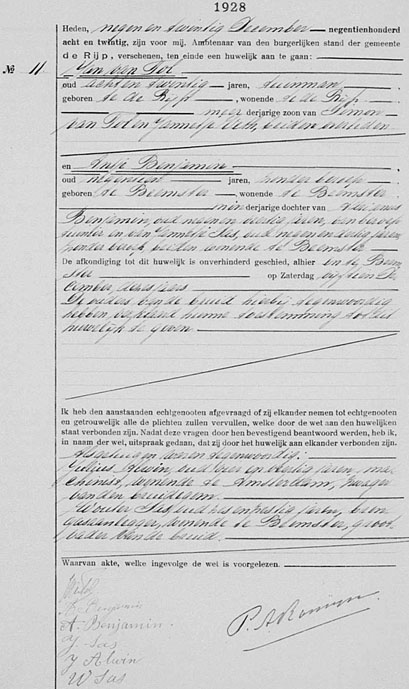 1928
Heden, negen en twintig December negentienhonderd
acht en twintig, zijn voor mij, Ambtenaar van den burgerlijken stand der gemeente
de Rijp, verschenen, ten einde een huwelijk aan te gaan:
No. 11. Jan van Tol
oud acht en twintig jaren, tuinman
geboren te de Rijp, wonende te de Rijp
meerderjarige zoon van Simon
van Tol en Jannetje beiden overleden
en Antje Benjamin
oud negentien jaren, zonder beroep
geboren te Beemster, wonende te Beemster
minderjarige dochter van
Benjamin, oud negen en veertig jaren, van beroep
en van Sas, oud negen en veertig jaren,
zonder beroep, beiden wonende te Beemster
De afkondiging tot dit huwelijk is onverhinderd geschied, alhier en te Beem-
ster op Zaterdag vijftien De-
cember dezes jaars
De ouders van de bruid hierbij tegenwoordig
hebben verklaard hunne toestemming tot dit
huwelijk te geven
Ik heb den aanstaanden echtgenooten afgevraagd of zij elkander nemen tot echtgenooten
en getrouwelijk alle de plichten zullen vervullen, welke door de wet aan den huwelijken
staat verbonden zijn. Nadat deze vragen door hen bevestigend beantwoord werden, heb ik,
in naam der wet, uitspraak gedaan, dat zij door het huwelijk aan elkander verbonden zijn.
Als getuigen waren tegenwoordig:
Alwin, oud en dertig jaren, ma-
chinist, wonende te Amsterdam, zwager
van den bruidegom
Wouter Sas, oud en zestig jaren,
wonende te Beemster, groot-
vader van de bruid
Waarvan akte, welke ingevolge de wet is voorgelezen.
Benjamin
A. Benjamin.
J. Sas
J Alwin
W Sas